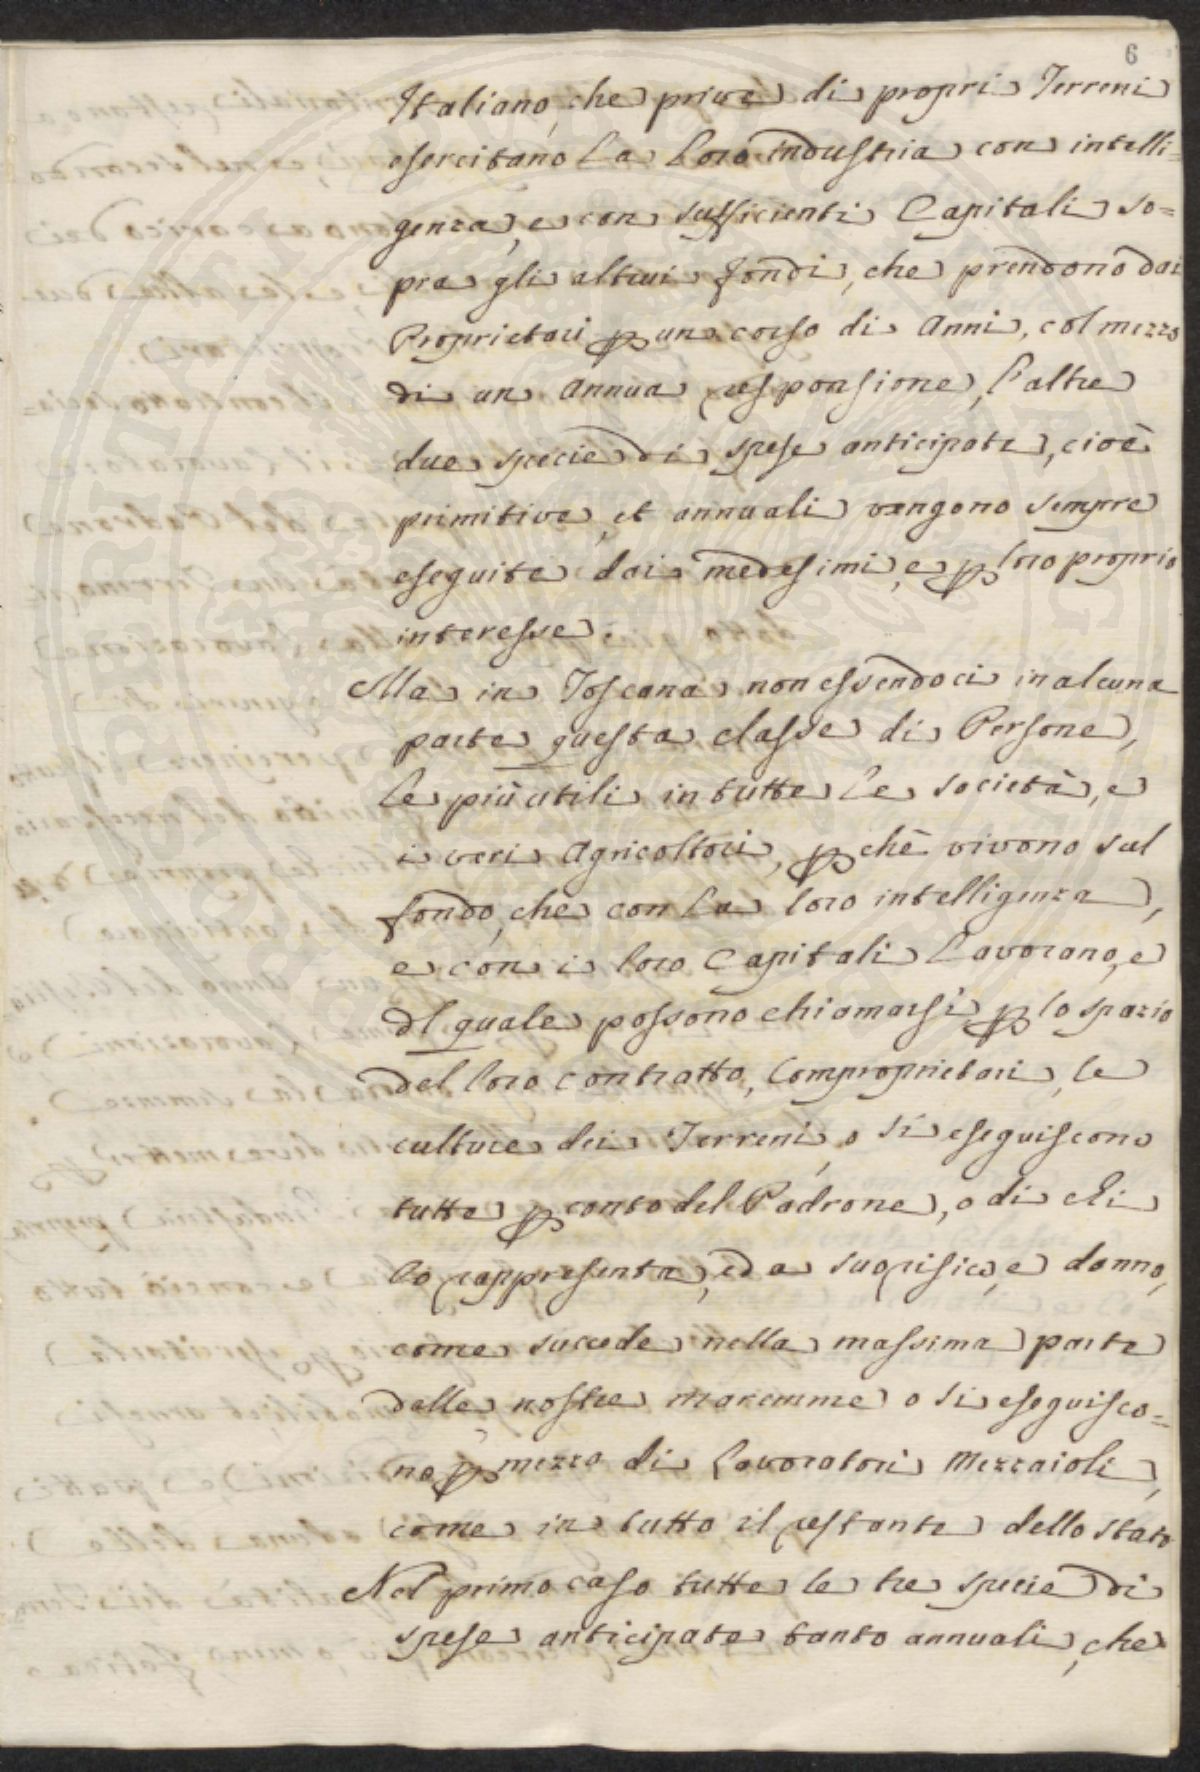 6
Italiano, che privi di propri Terreni
esercitano la loro industria con intelli=
genza, e con sufficienti Capitali so=
pra gli altrui fondi, che prendono dai
Proprietari p un corso di Anni, col mezzo
di un Annua responsione, l'altre
due specie di spese anticipate, cioè
primitive, et annuali vengono sempre
eseguite dai medesimi, e p loro proprio
interesse.
Ma in Toscana non essendoci in alcuna
parte questa classe di Persone,
le più utili in tutte le società, e
i veri Agricoltori, p chè vivono sul
fondo, che con la loro intelligenza,
e con i loro Capitali lavorano, e
del quale possono chiamarsi p lo spazio
del loro contratto, Comproprietari, le
culture dei Terreni, o si eseguiscono
tutte p conto del Padrone, o di chi
lo rappresenta, ed a suo risico, e danno,
come succede nella massima parte
delle nostre maremme o si eseguisco=
no p mezzo di Lavoratori Mezzaioli,
come in tutto il restante dello Stato
Nel primo caso tutte le tre specie di
spese anticipate tanto annuali, che